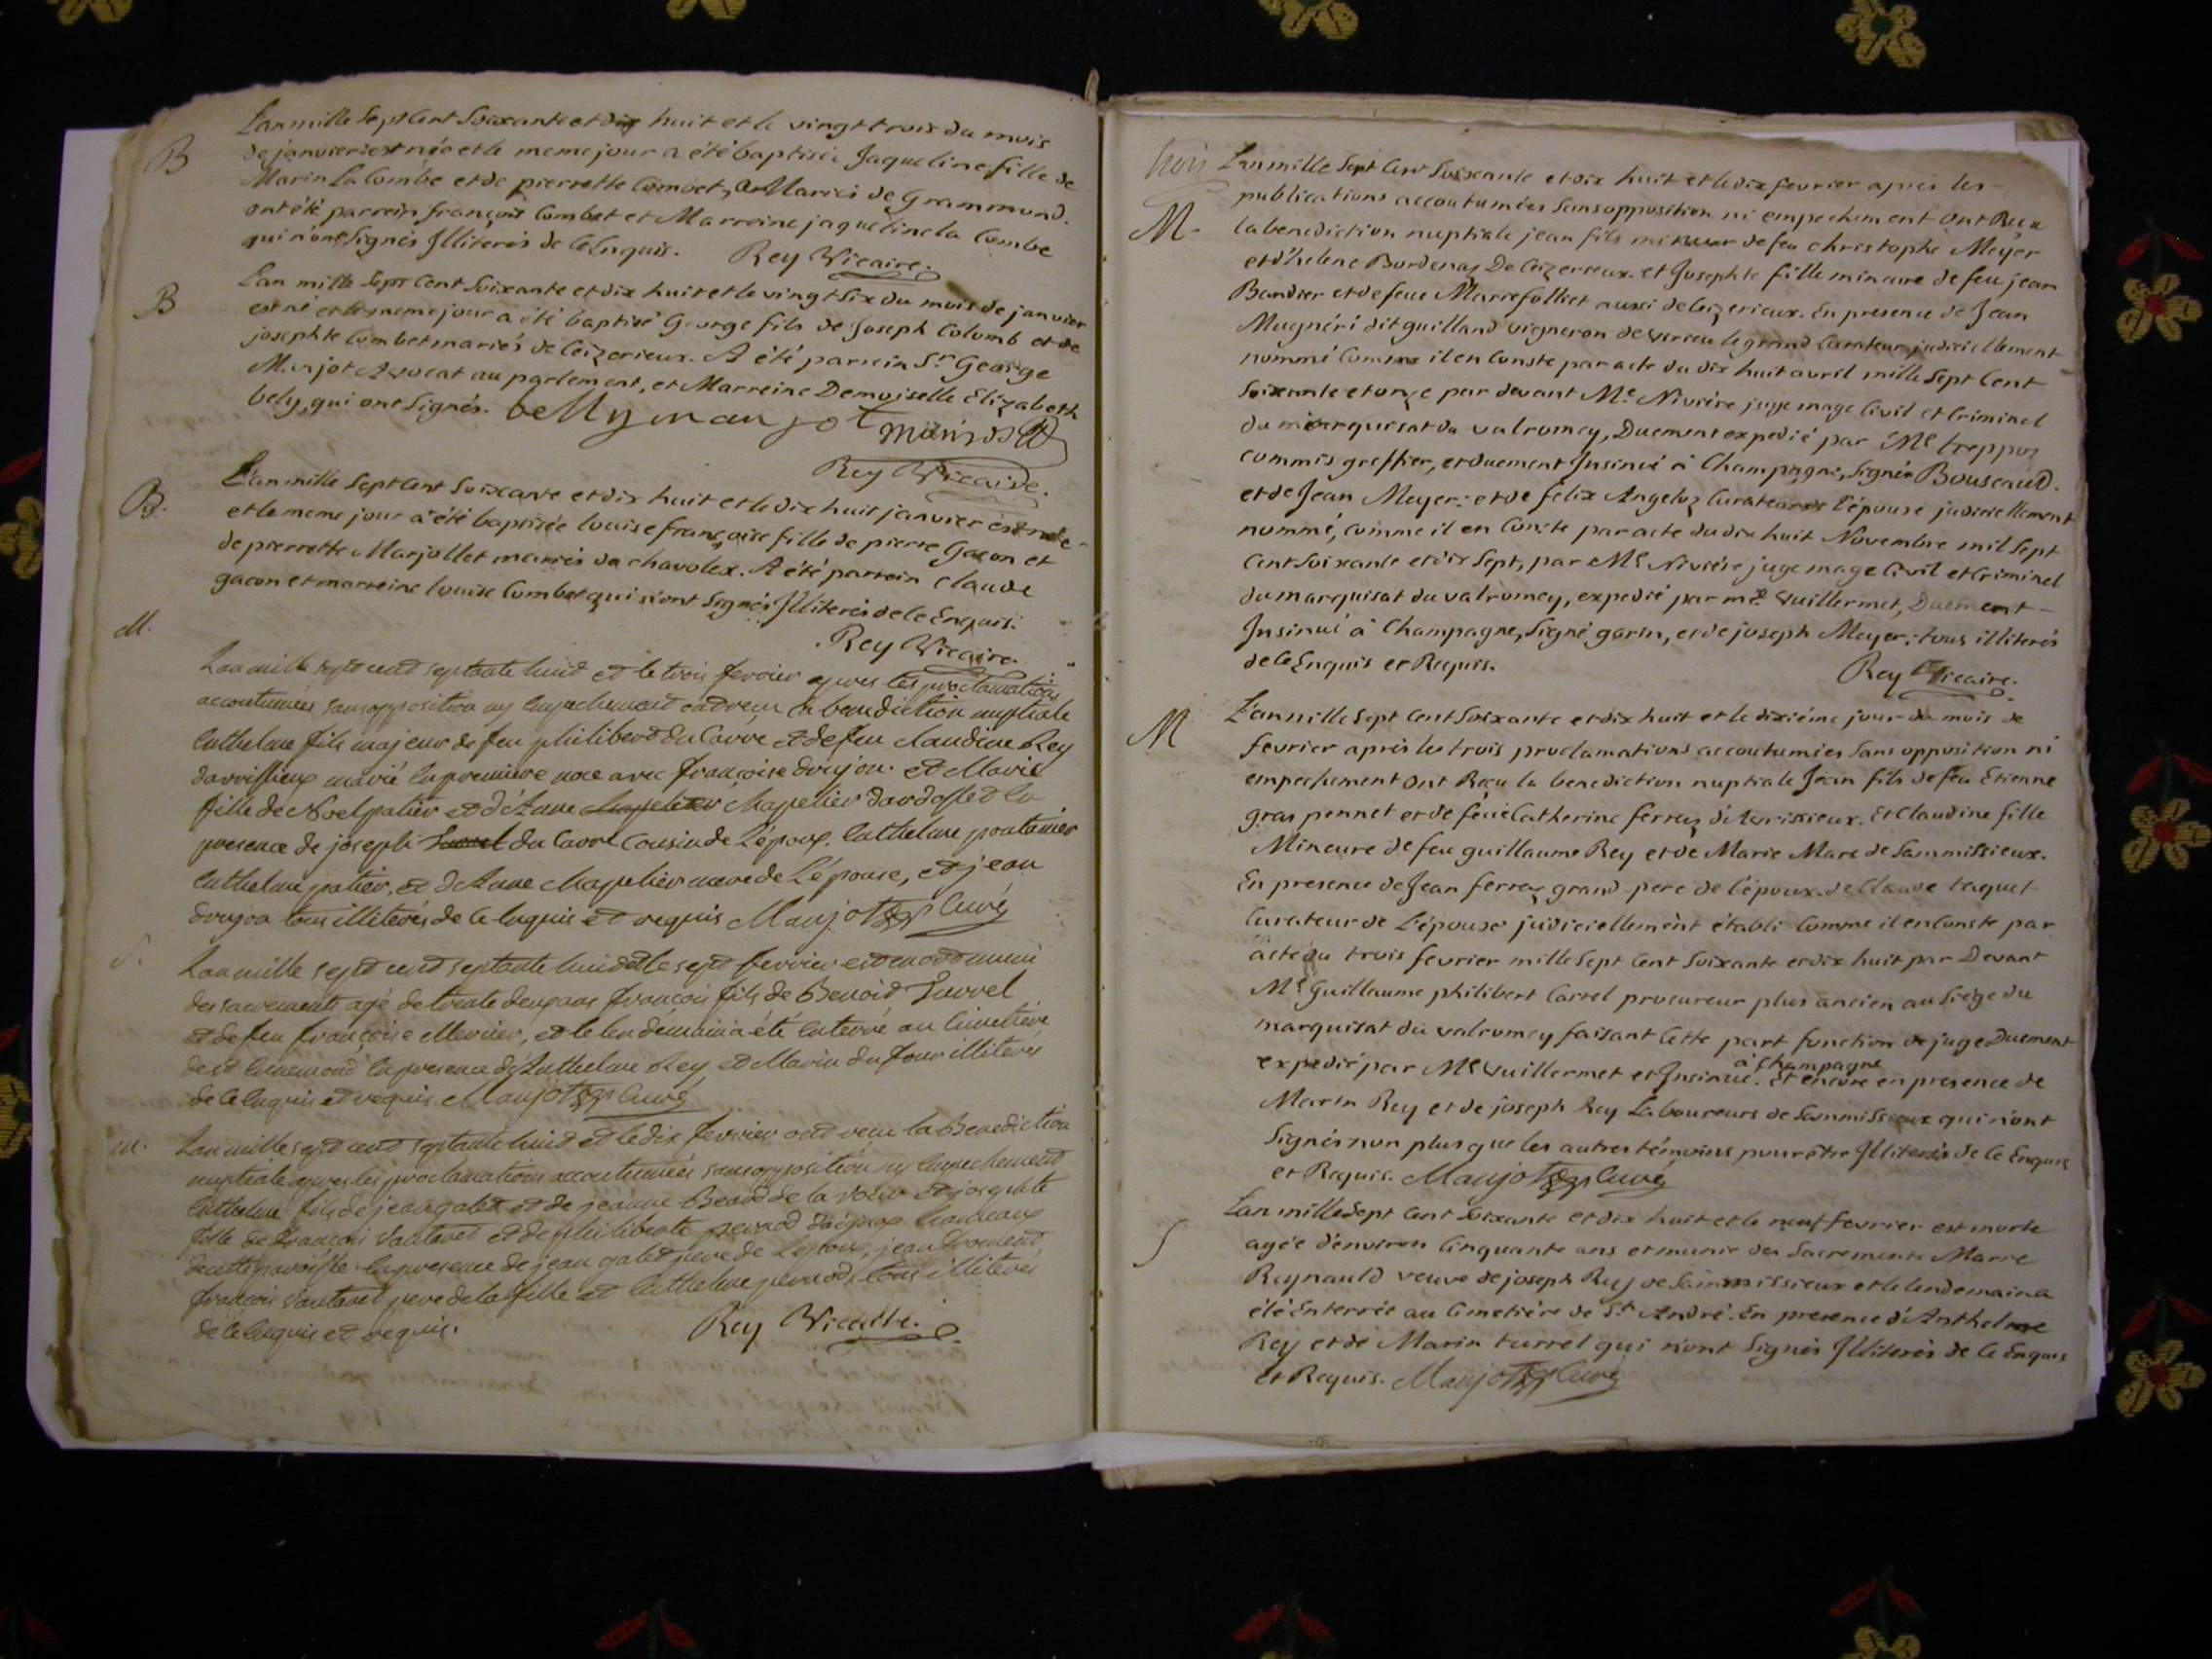 B
L'an mille Sept Cent Soixante et dix huit et le vingt trois du mois
de janvier est née et le meme jour a été baptisée Jaqueline fille de
Marin La Combe et de pierrette Combet, Mariés de Grammond.
ont été parrein françois Combet et Marreine jaqueline la Combe
qui n'ont Signés Illiterés de Ce Enquis. Rey Vicaire.
B
L'an mille Sept Cent Soixante et dix huit et le vingt Six du mois de janvier
est né et le meme jour a été baptisé George fils de Joseph Colomb et de
josephte Combet mariés de Ceizerieux. A été parrein Sr. George
Manjot Avocat au parlement, et Marreine Demoiselle Elizabeth
bely, qui ont Signés. belly manjot
Rey Vicaire.
B.
L'an mille Sept Cent Soixante et dix huit et le dix huit janvier est née
et le meme jour a été baptisée louise françoise fille de pierre Gacon et
de pierrette Marjollet mariés de chavolex. A été parrein Claude
gacon et marreine louise Combet qui n'ont Signés Illiterés de Ce Enquis.
Rey Vicaire.
M.
L'an mille sept cent septante huit et le trois fevrier apres les proclamations
accoutumées sans opposition ny Empechement ont reçu la benediction nuptiale
Enthelme fils majeur de feu philibert du Carre et de feu Claudine Rey
d'avrissieux marié En premiere noce avec françoise doujon. et Marie
fille de Noel patier et d'Anne Chapelier d'ardosset En
presence de joseph du Carre Cousin de L'époux. Enthelme pontanier
Enthelme patier, et d'Anne Chapelier mere de L'épouse, et jean
doujon tous illiterés de Ce Enquis et requis Manjot Curé
S.
L'an mille sept cent septante huit et le sept fevrier est mort muni
des sacrements agé de trente deux ans françois fils de Benoit Turrel
et de feu françoise Mercier, et le lendemain a été Enterré au Cimetiere
de st Enemond En presence d'Enthelme Rey et Marin du four illiterés
de Ce Enquis et requis Manjot Curé
M.
L'an mille sept cent septante huit et le dix fevrier ont recu la Benediction
nuptiale apres les proclamations accoutumées sans opposition ny Empechement
Enthelme fils de jean galet et de jeanne Beard de la Tour et josephte
fille de françois Vautaret et de philiberte pernod
de cette paroisse En presence de jean galet pere de Lepoux, jean froment
françois Vautaret pere de la fille et Enthelme pernod, tous illiterés
de Ce Enquis et requis. Rey Vicaire.
trois
M.
L'an mille Sept Cent Soixante et dix huit et le dix fevrier apres les
publications accoutumées Sans opposition ni empechement Ont Reçu
la benediction nuptiale jean fils mineur de feu christophe Meyer
et d'helene Bordenaz De Ceizerieux. et Josephte fille mineure de feu jean
Bandier et de feue Marie folliet aussi de Ceizerieux. En presence de Jean
Mugnéri dit guilland vigneron de virieu le grand Curateur judiciellement
nommé Comme il en Conste par acte du dix huit avril mille Sept Cent
Soixante et onze par devant Me. Nivière juge mage Civil et Criminel
du marquisat du valromey, Duement expedié par Me treppoz
commis greffier, et duement Insinué à Champagne, Signé Bouscaud.
et de Jean Meyer: et de félix Angeloz Curateur de l'épouse judiciellement
nommé, comme il en Conste par acte du dix huit Novembre mil Sept
Cent Soixante et dix Sept, par Me Nivière juge mage Civil et Criminel
du marquisat du valromey, expedié par me. Vuillermet, Duement
Insinué à Champagne, Signé garin, et de joseph Meyer: tous illiterés
de Ce Enquis et Requis. Rey Vicaire.
M
L'an mille Sept Cent Soixante et dix huit et le dixième jour du mois de
fevrier après les trois proclamations accoutumées Sans opposition ni
empechement Ont Reçu la benediction nuptiale Jean fils de feu Etienne
gras pennet et de feüe Catherine ferraz d'Avrissieux. Et Claudine fille
Mineure de feu guillaume Rey et de Marie Mare de Sammissieux.
En presence de Jean ferraz grand-pere de l'époux. de Claude taquet
Curateur de L'épouse judiciellement établi Comme il en Conste par
acte du trois fevrier mille Sept Cent Soixante et dix huit par Devant
Me Guillaume philibert Carrel procureur plus ancien au Siège du
marquisat du valromey faisant Cette part fonction de juge Duement
expedié par Me Vuillermet et Insinué à Champagne. Et encore en presence de
Marin Rey et de joseph Rey Laboureurs de Sammissieux qui n'ont
Signés non plus que les autres témoins pour être Illiterés de Ce Enquis
et Requis. Manjot Curé
S
L'an mille Sept Cent Soixante et dix huit et le neuf fevrier est morte
agée d'environ Cinquante ans et munie des Sacrements Marie
Reynauld veuve de joseph Rey de Sammissieux et le lendemain a
été Enterrée au Cimetière de St. André. En presence d'Anthelme
Rey et de Marin turrel qui n'ont Signés Illiterés de Ce Enquis
et Requis. Manjot Curé